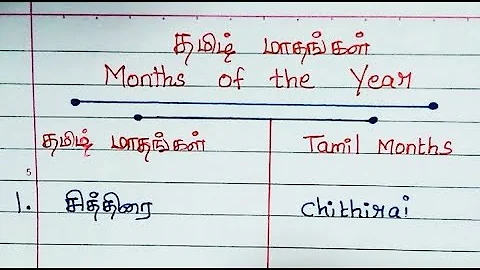 தமிழ் மாதங்கள்
Months of the Year
தமிழ் மாதங்கள் Tamil Months
5
1. சித்திரை Chithirai